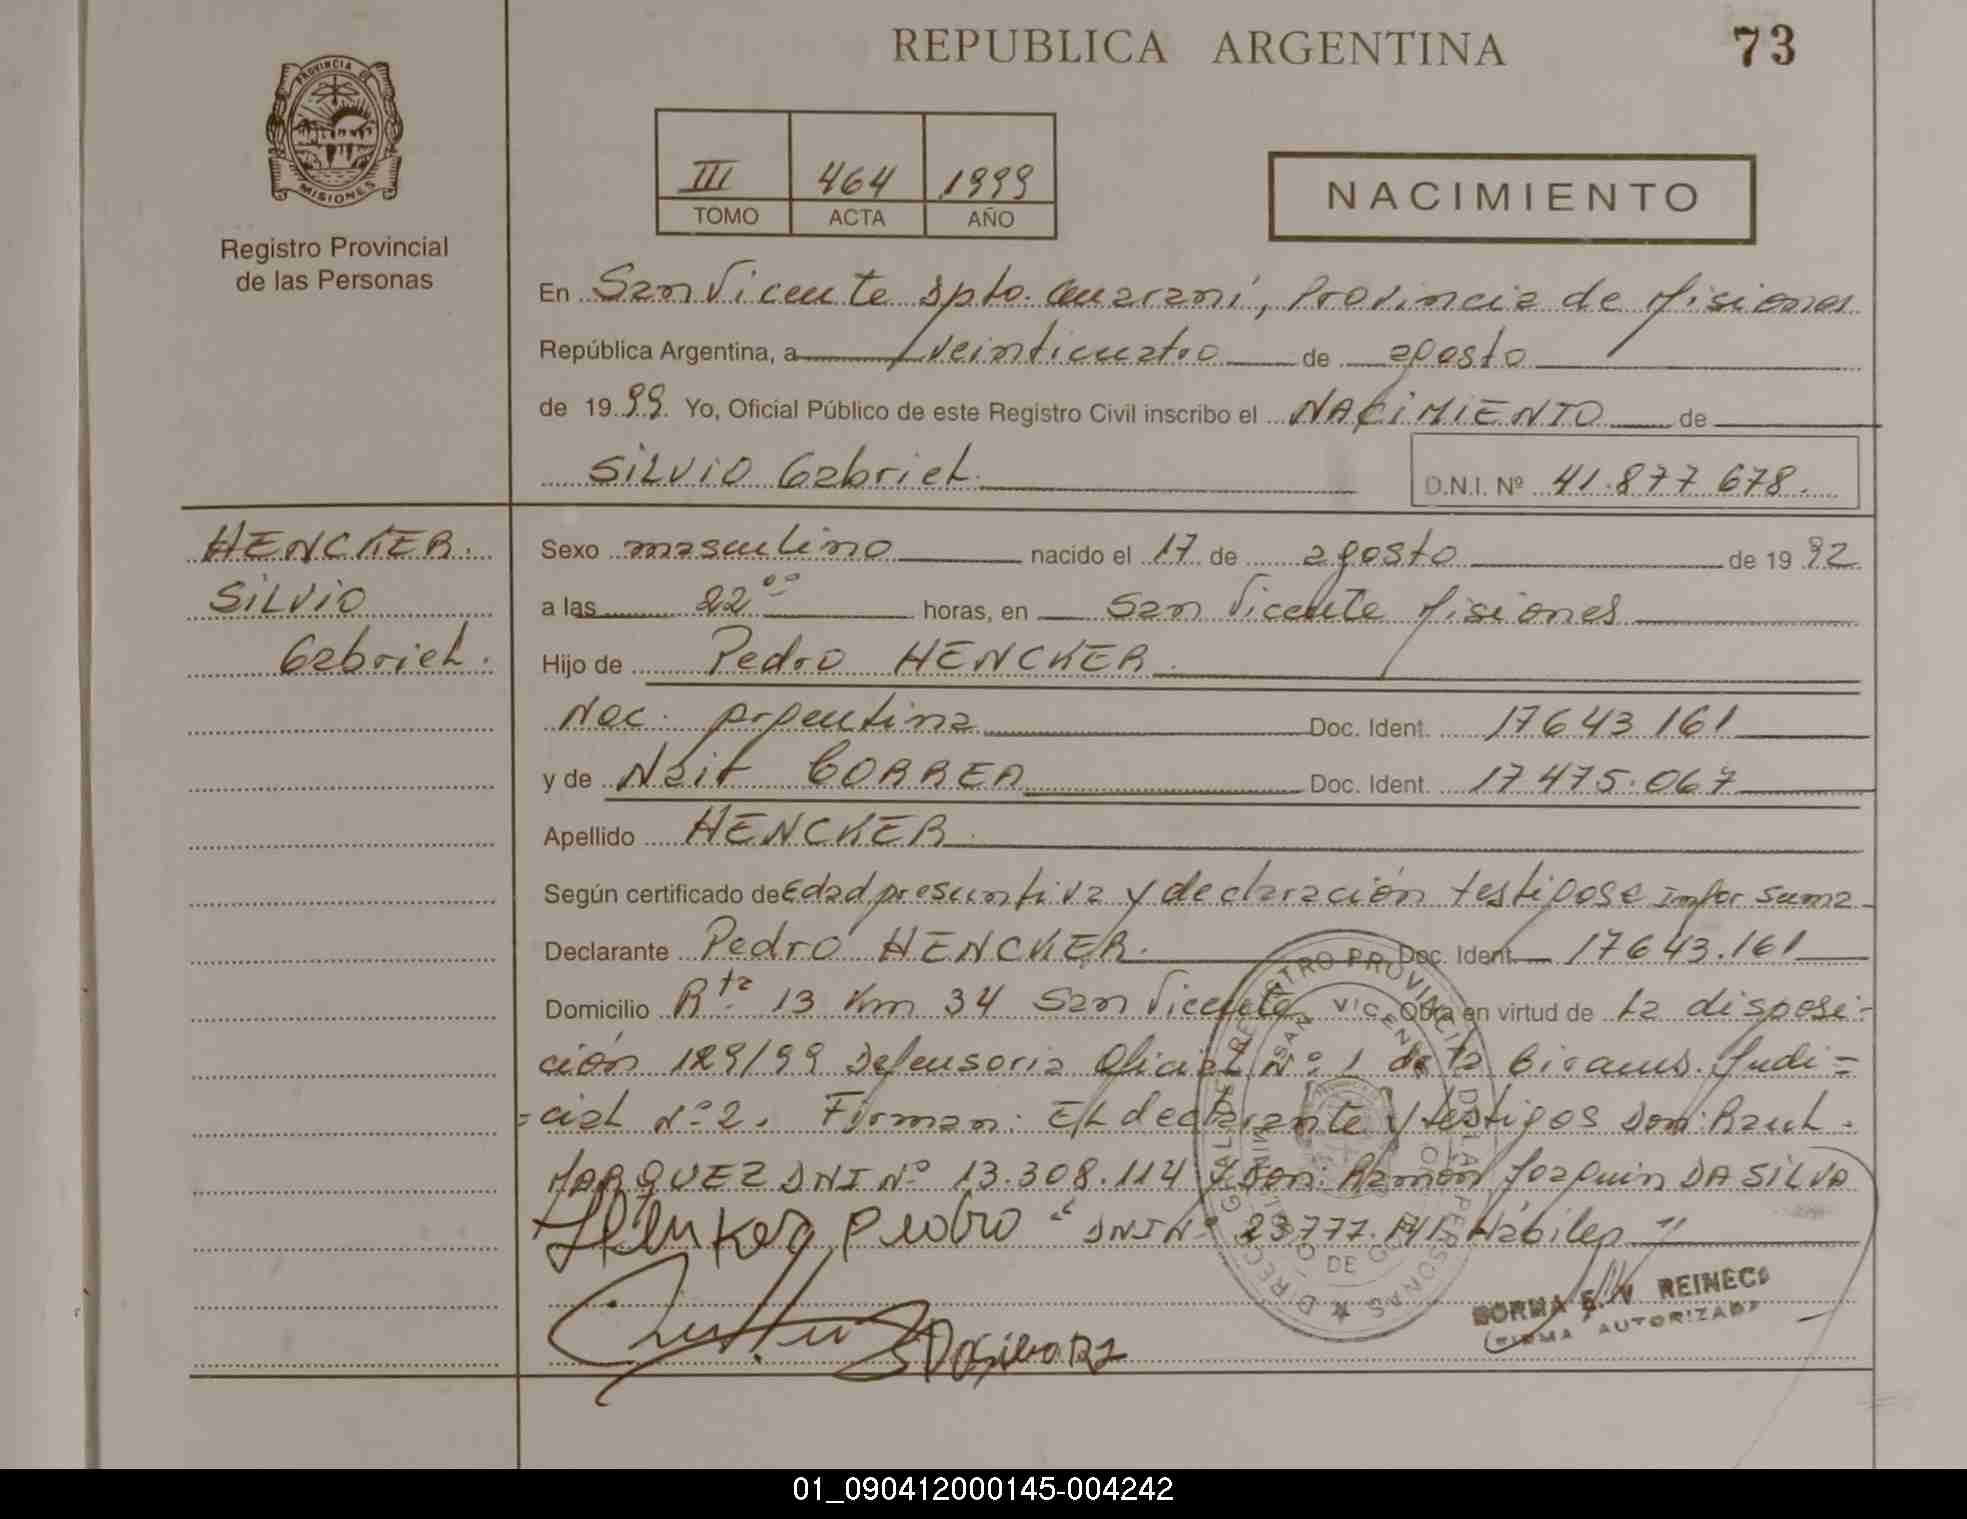 REPUBLICA ARGENTINA
73
PROVINCIA DE
MISIONES
Registro Provincial
de las Personas
III 464 1999
TOMO ACTA AÑO
NACIMIENTO
En San Vicente Dpto. Guaraní, Provincia de Misiones
República Argentina, a veinticuatro de agosto
de 1999. Yo, Oficial Público de este Registro Civil inscribo el NACIMIENTO de
SILVIO Gabriel.
D.N.I. Nº 41.877.678.
HENCKER.
SILVIO
Gabriel.
Sexo masculino nacido el 17 de agosto de 1992
a las 22°° horas, en San Vicente Misiones
Hijo de Pedro HENCKER.
Nac. Argentina Doc. Ident. 17643161
y de CORREA Doc. Ident. 17475.067
Apellido HENCKER.
Según certificado de Edad presuntiva y declaración testigos e infor suma
Declarante Pedro HENCKER. Doc. Ident. 17643.161
Domicilio Rta. 13 Km 34 San Vicente Obra en virtud de la disposi-
ción 129/99 Defensoria Oficial Nº 1 de la Circuns. Judi=
=cial Nº 2. Firman: El declarante y testigos Don: Raul.
MARQUEZ DNI Nº 13.308.114 y Don: Ramon Joaquin DA SILVA
Henker Pedro " DNI Nº 23.777.141. Hábiles "
DIRECC GRAL REGISTRO PROVINCIAL DE LAS PERSONAS
SAN VICENTE
REINECK
FIRMA AUTORIZADA
Dasilva RJ
01_090412000145-004242